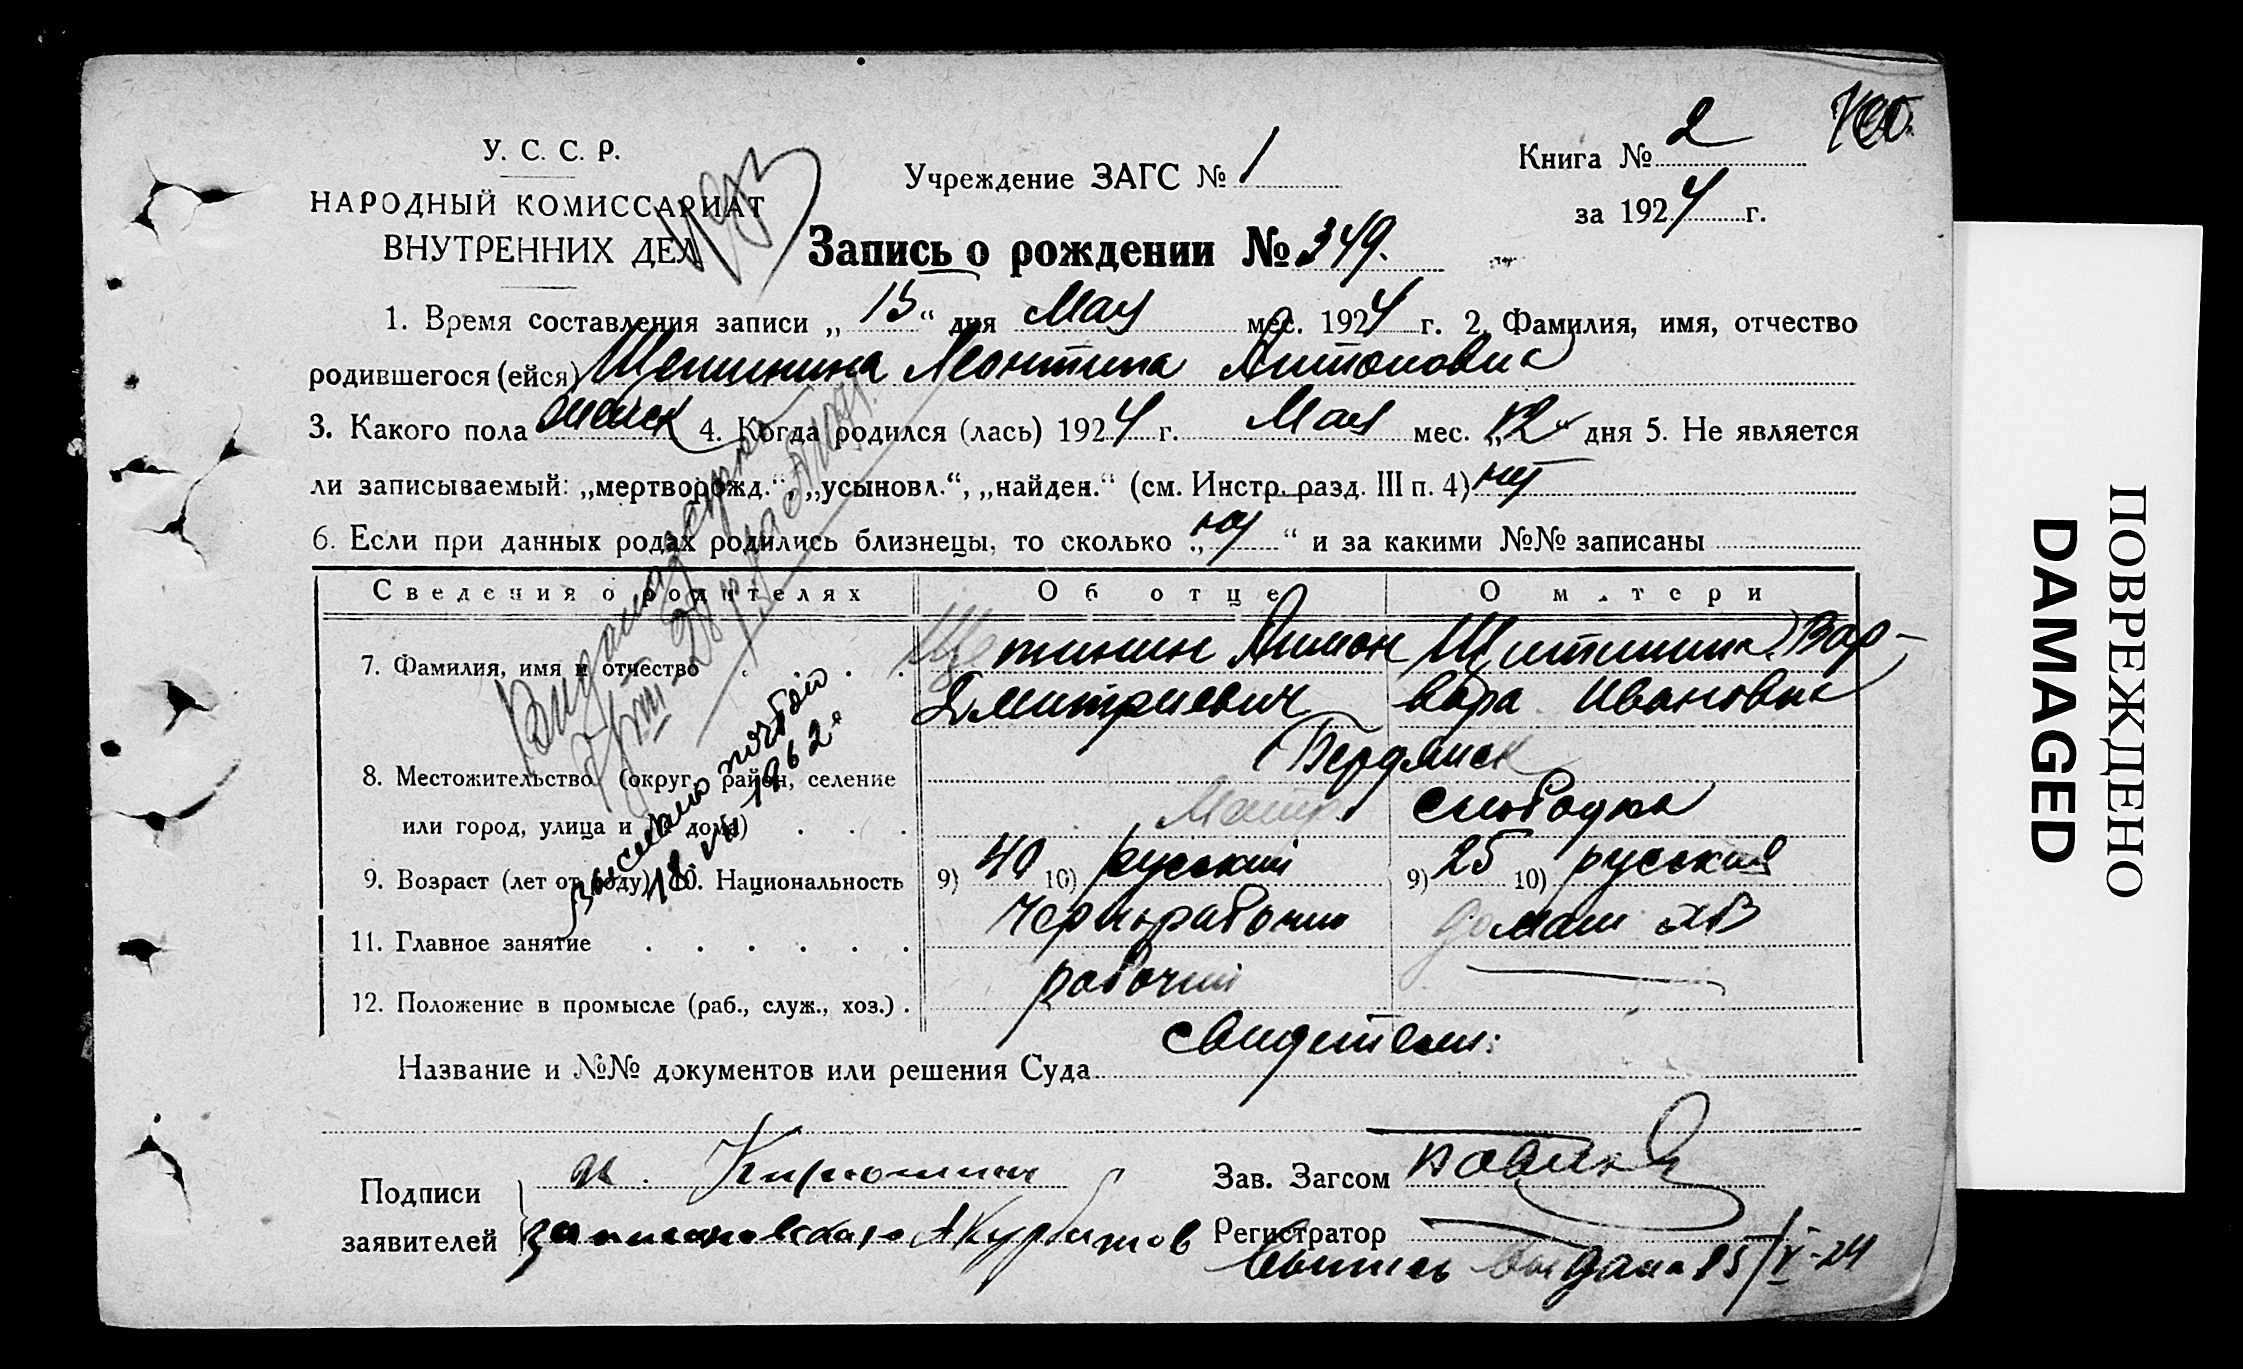 У. С. С. Р.
НАРОДНЫЙ КОМИССАРИАТ
ВНУТРЕННИХ ДЕЛ
Учреждение ЗАГС № 1
Книга № 2
за 1924 г.
Запись о рождении № 349.
1. Время составления записи „15“ дня Мая мес. 1924 г. 2. Фамилия, имя, отчество
родившегося (ейся) Щетинина Леонтина Антоновна
3. Какого пола женск 4. Когда родился (лась) 1924 г. Мая мес. „12“ дня 5. Не является
ли записываемый: „мертворожд.“, „усыновл.“, „найден.“ (см. Инстр. разд. III п. 4) нет
6. Если при данных родах родились близнецы, то сколько „нет“ и за какими №№ записаны
Сведения о родителях Об отце О матери
7. Фамилия, имя и отчество Щетинин Антон Щетинина Вар-
Дмитриевич вара Ивановна
8. Местожительство (округ, район, селение Бердянск
или город, улица и № дома) слободка
9. Возраст (лет от роду) 10. Национальность 9) 40 10) русский 9) 25 10) русская
11. Главное занятие Чернорабочий домаш хоз
12. Положение в промысле (раб., служ., хоз.) рабочий
Выслано почтой
18. VII 1962 г.
Название и №№ документов или решения Суда свидетели:
Подписи
заявителей
Зав. Загсом
Регистратор
Выпись выдана 15/V-24
ПОВРЕЖДЕНО
DAMAGED